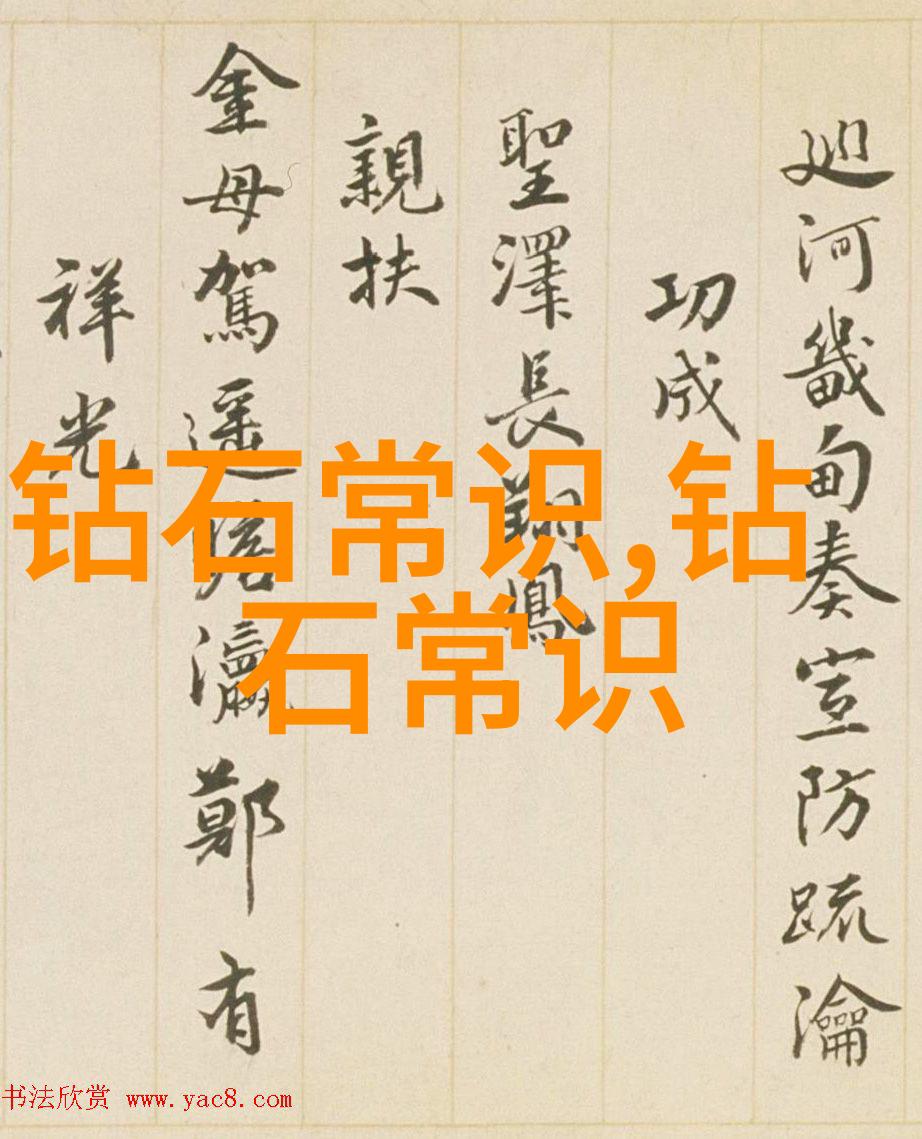 廵河畿甸奏宣防疏瀹
功成
聖澤長翔鳳
親扶
金母駕遥瀛鄭有
祥光
钻石常识,钻
石常识
书法欣赏 www.yac8.com